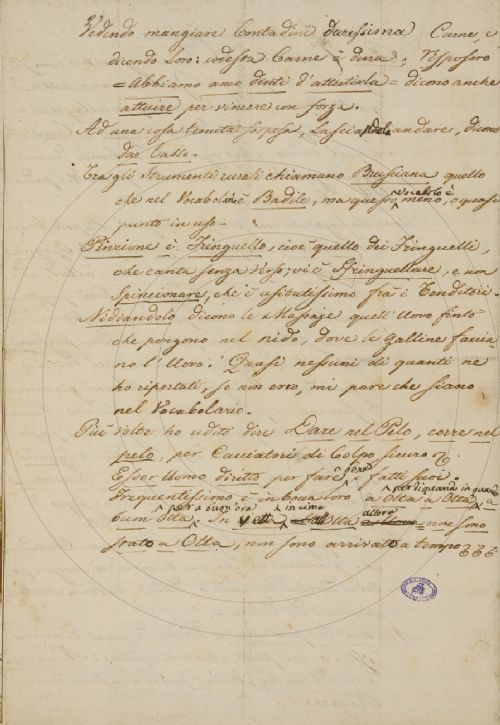 Vedendo mangiare Contadini durissima Carne, e
dicendo loro: codesta Carne è dura; risposero
= Abbiamo anco denti d'attutirla = dicono anche
attuire per vincere con forza.
Ad una cosa tenuta sospesa, lasciandola andare, dicono
dar lasso.
Tra gli strumenti rurali chiamano Brusiana quello
che nel Vocabolario è Badile, ma questo vocabolo è meno, o quasi
punto in uso.
Pinzione è Fringuello, cioè quello dei Fringuelli,
che canta senza verso; vi è Sfringuellare, e non
Spincionare, che è usitatissimo fra i Tenditori.
Nidiandolo dicono le Massaje quell'Uovo finto
che pongono nel nido, dove le galline faccia-
no l'Uovo. Quasi nessuni di quanti ne
ho riportati, se non erro, mi pare che siano
nel Vocabolario.
Più volte ho udito dire Dare nel Pelo, corre nel
pelo, per Cacciatori di Colpo sicuro
Esser Uomo diritto per fare i fatti suoi.
Frequentissimo è in bocca loro a Otta a Otta, per di quando in quando a
buon'Otta, per a buon'ora. In vetta in cima Otta allora non sono
stato a Otta, non sono arrivato a tempo